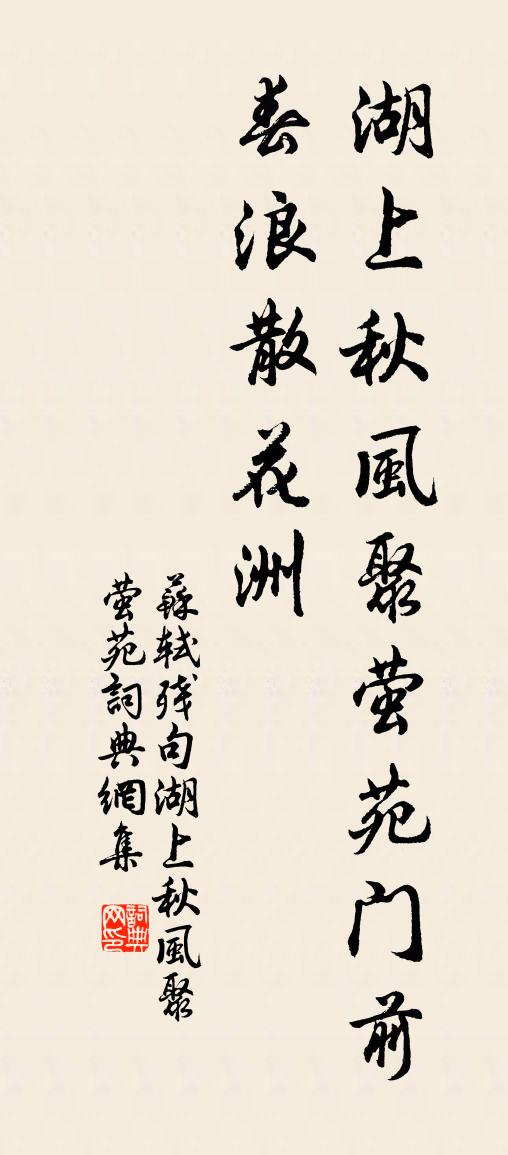 湖上秋風聚萤苑門前
春浪散花洲
蘇轼残句湖上秋風聚
萤苑詞典網集
詞典网印